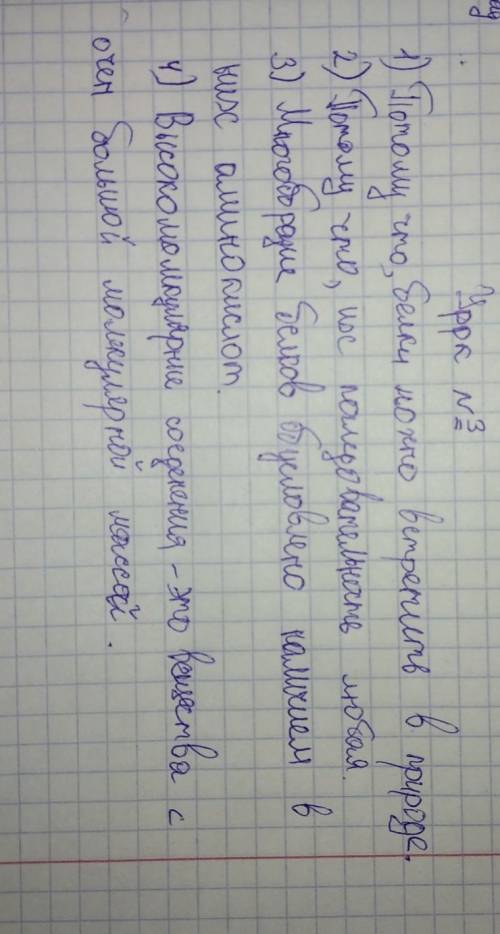 Урок №3
1) Потому что, белки можно встретить в природе.
2) Потому что, их последовательность любая.
3) Многобразие белков обусловлено наличием в
них аминокислот.
4) Высокомолекулярные соеденения - это вещества с
очен большой молекулярной массой.